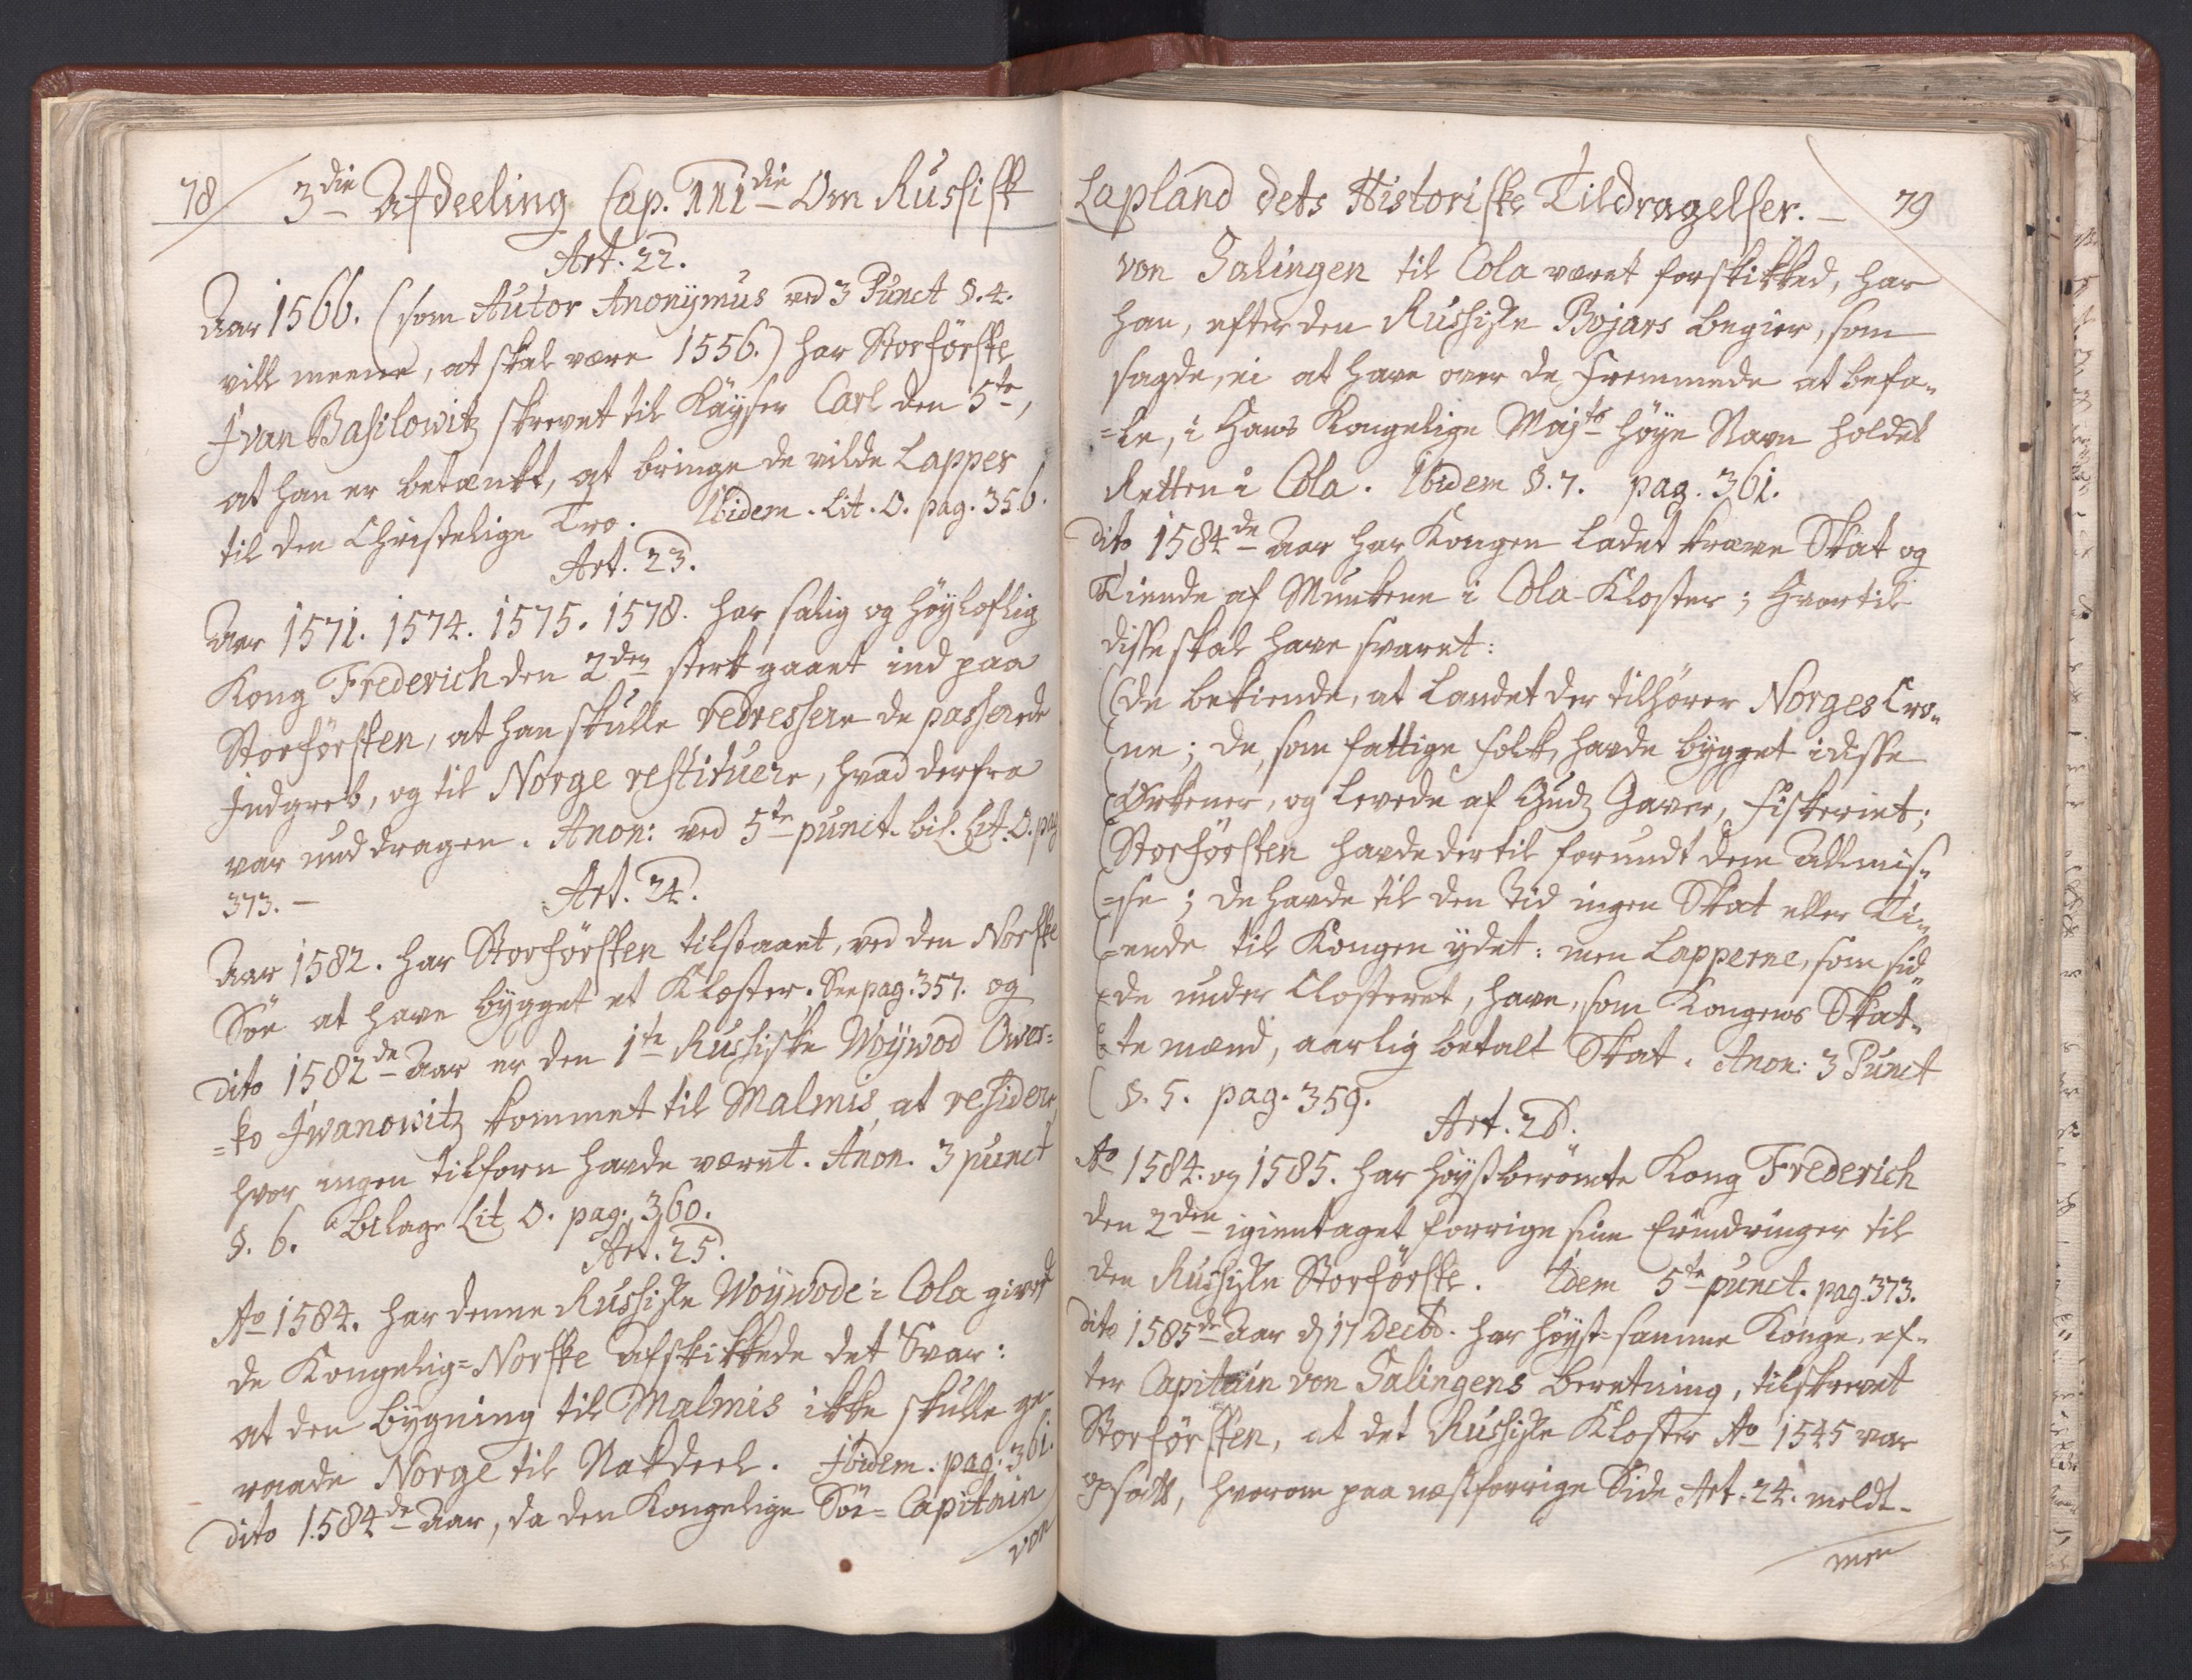 78
3die Afdeeling Cap. III die Om Russisk
Art. 22.
Aar 1566. (som Autor Anonÿmus ved 3 Punct §. 4.
vill meene, at skal være 1556.) har Storförste
Ivan Basilowitz skrevet til Käÿser Carl den 5te,
at han er betænkt, at bringe de vilde Lapper
til den Christelige Tro. Ibidem. Lit. O. pag. 356.
Art. 23.
Aar 1571. 1574. 1575. 1578. har salig og höÿloflig
Kong Frederich den 2den sterk gaaet ind paa
Storförsten, at han skulle redressere de passerede
Indgreb, og til Norge restituere, hvad derfra
var unddragen. Anon: ved 5te punct. bil. Lit. O. pag
373. —
Art. 24.
Aar 1582. har Storförsten tilstaaet, ved den Norske
Söe at have bÿgget et Kloster. See pag. 357. og
dito 1582de Aar er den 1te Russiske Woÿwod Aver=
=ko Iwanowitz kommet til Malmis, at residere,
hvor ingen tilforn havde været. Anon. 3 punct
§. 6. Bilage Lit O. pag. 360.
Art. 25.
Ao 1584. har denne Russiske Woÿwode i Cola gived
de Kongelig=Norske Afskikkede det Svar:
at den bÿgning til Malmis ikke skulle ge=
raade Norge til Nakdeel. Ibidem. pag. 361.
dito 1584de Aar, da den Kongelige Söe=Capitain
von
Lapland dets Historiske Tildragelser. — 79
von Salingen til Cola været forskikked, har
han, efter den Russiske Bojars begier, som
sagde, ei at have over de fremmede at befa=
=le, i Hans Kongelige Majts höÿe Navn holdet
Retten i Cola. Ibidem §. 7. pag. 361.
dito 1584de Aar har Kongen ladet kræve Skat og
Tiende af Munkene i Cola-Kloster; hvortil
disse skal have svaret:
((de bekiende, at Landet der tilhörer Norges Cro=
(ne; de, som fattige folk, havde bÿgget i disse
(Örkener, og levede af Gudz Gaver, fiskeriet;
(Storförsten havde dertil forundt dem Allmis=
(=se; de havde til den Tid ingen Skat eller Ti=
(=ende til Kongen ÿdet: men Lapperne, som sid=
(=de under Closteret, have, som Kongens Skat=
(=te mænd, aarlig betalt Skat. Anon: 3 Punct
( §. 5. pag. 359.
Art. 26.
Ao 1584. og 1585. har höÿstberömte Kong Frederich
den 2den igientaget forrige sine Erindringer til
den Russiske Storförste. Idem 5te punct. pag. 373.
dito 1585de Aar d 17 Decbr. har höÿst=samme Konge, ef=
ter Capitain von Salingens beretning, tilskrevet
Storförsten, at det Russiske Kloster Ao 1545 var
opsatt, hvorom paa næstforrige Side Art. 24. meldt.
men